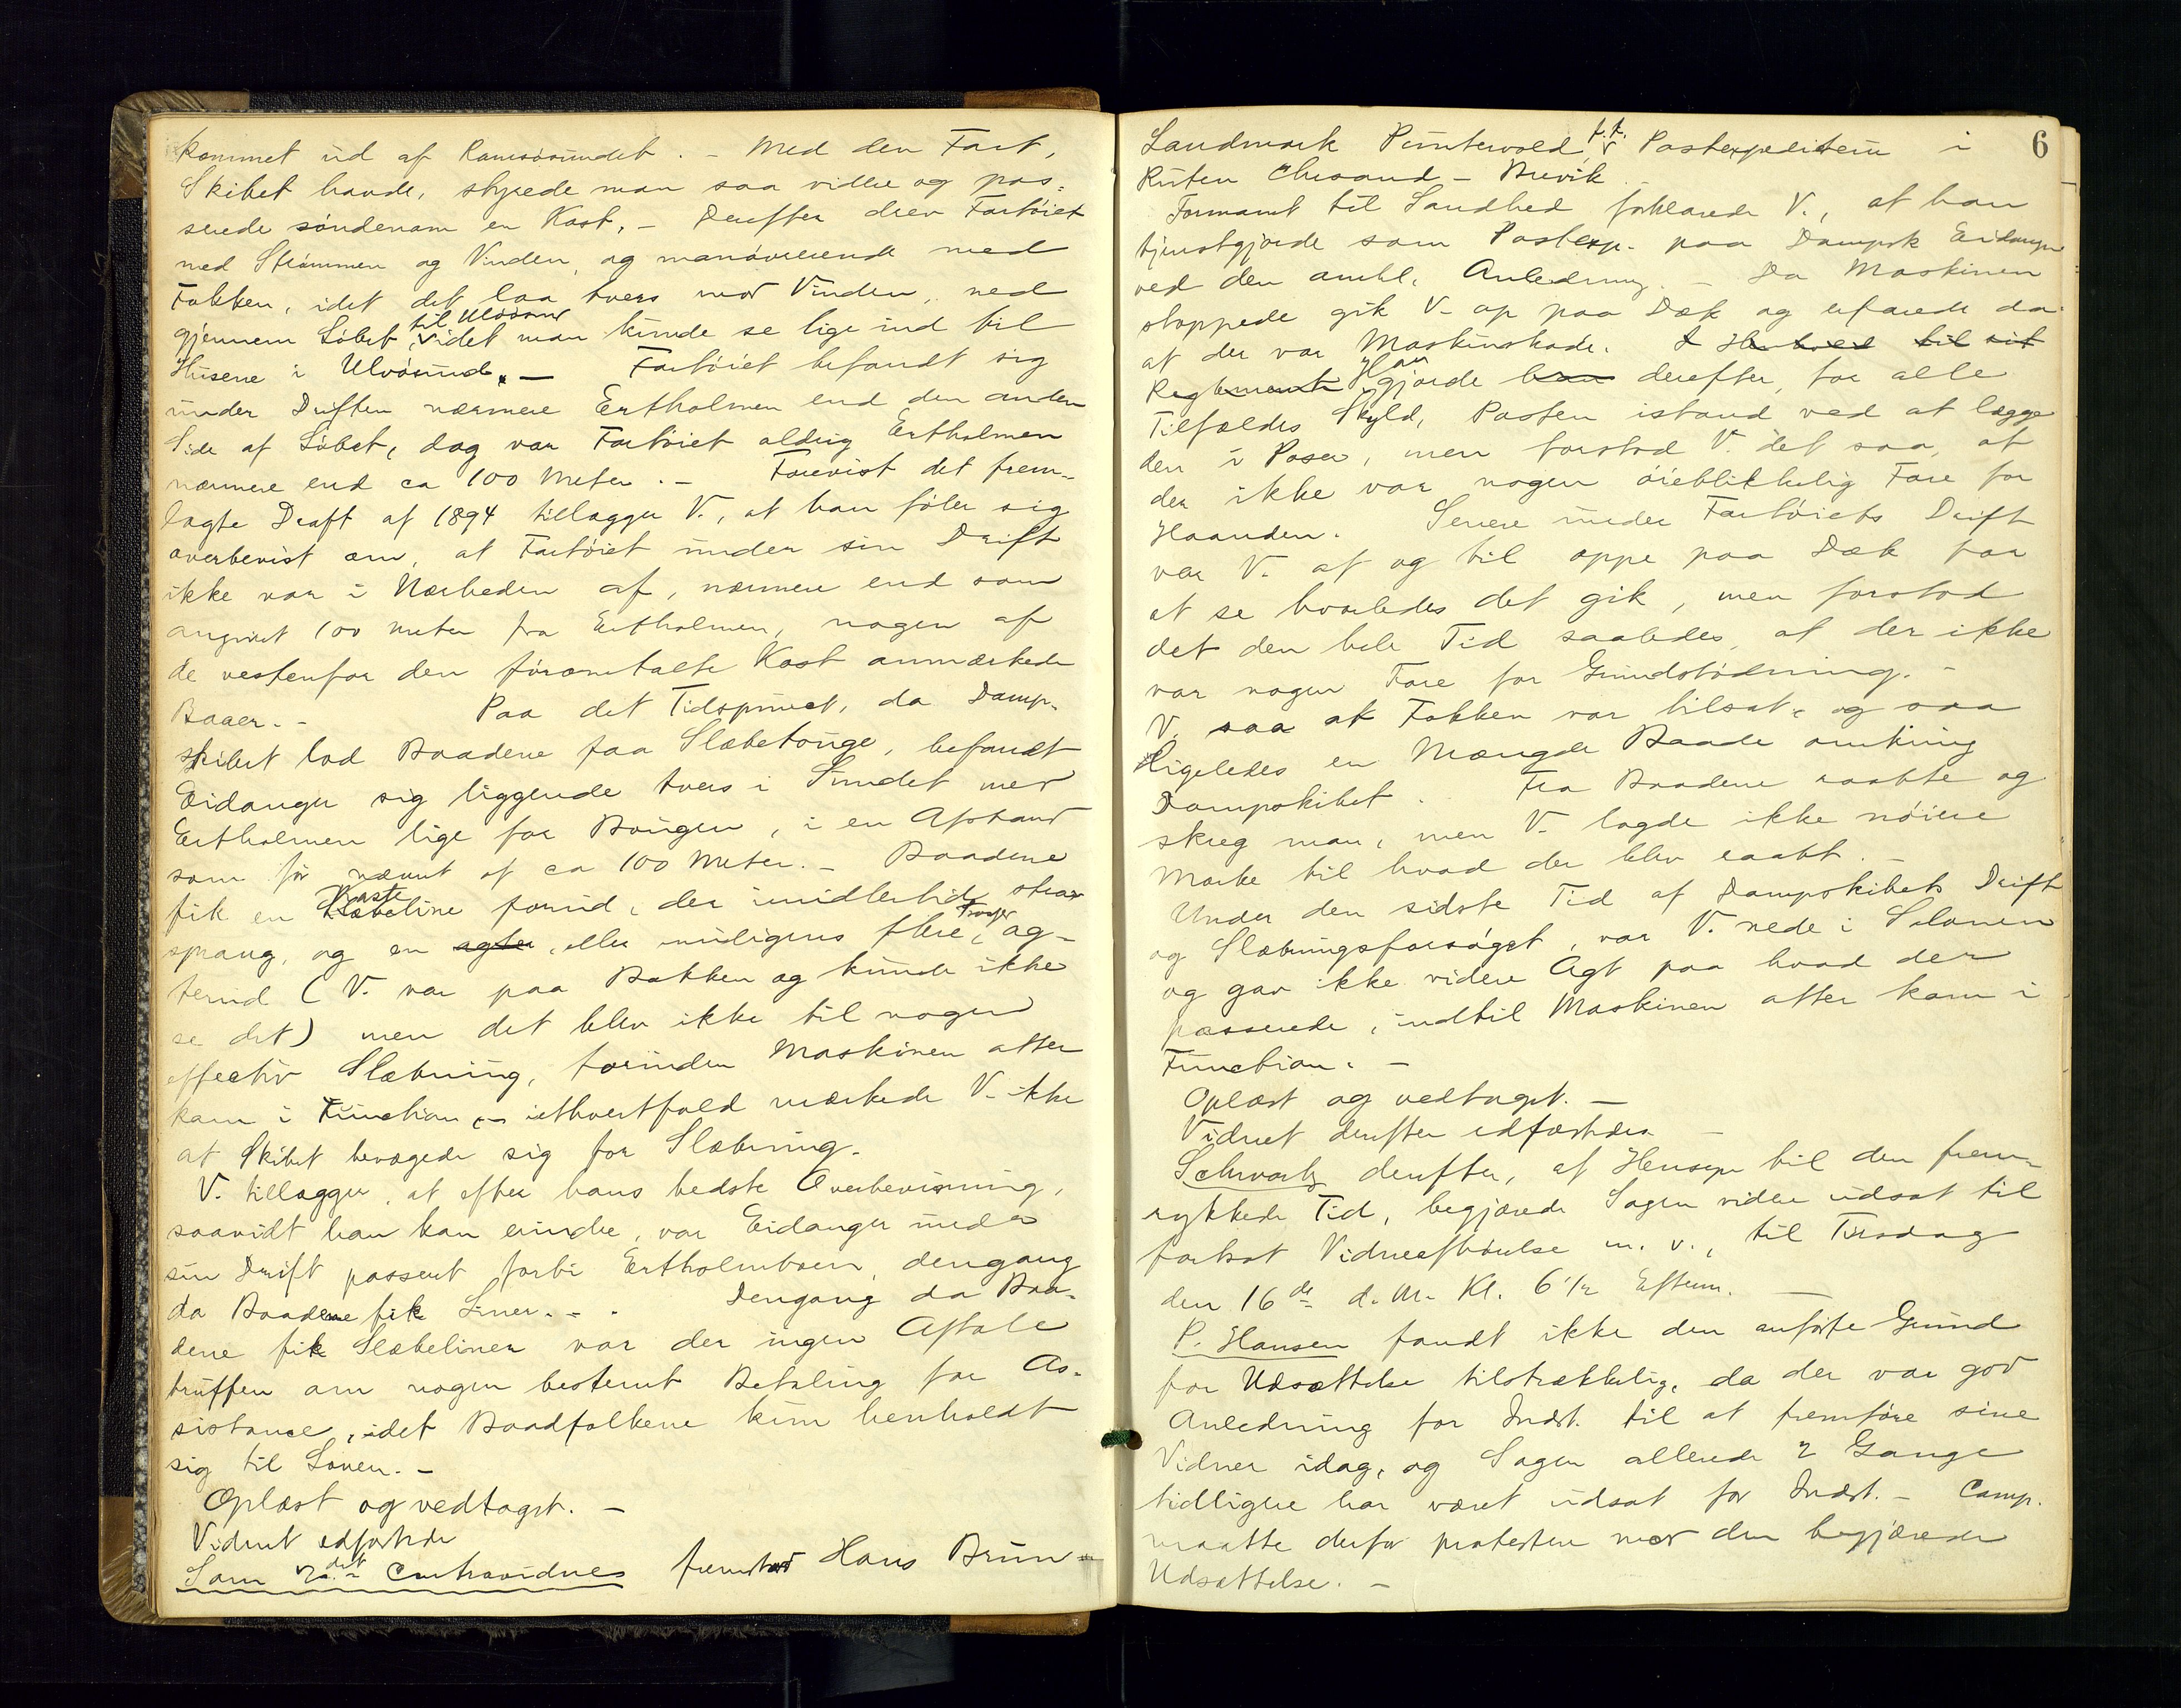 kommet ud af Ramsøsundet. - Med den Fart,
Skibet havde, styrede man saa videre og pas-
serede søndenom en Kost. - Derefter drev Fartøiet
med Strømmen og Vinden, og manøvrerende med
Fokken, idet det laa tvers mod Vinden, ned
gjennem Løbet til Ulvøsund, idet man kunde se lige ind til
Husene i Ulvøsund. - Fartøiet befandt sig
under Driften nærmere Ertholmen end den anden
Side af Løbet, dog var Fartøiet aldrig Ertholmen
nærmere end ca 100 Meter. - Forevist det frem-
lagte Draft af 1894 tillægger V., at han føler sig
overbevist om, at Fartøiet under sin Drift
ikke var i Nærheden af, nærmere end som
angivet 100 Meter fra Ertholmen, nogen af
de vestenfor den føromtalte Kost anmærkede
Baaer. - Paa det Tidspunct, da Damp-
skibet lod Baadene faa Slæbetouge, befandt
Eidanger sig liggende tvers i Sundet med
Ertholmen lige for Bougen, i en Afstand
som før nævnt af ca 100 Meter. - Baadene
fik en Kasteline forud, der imidlertid strax
sprang, og en agter, eller muligens flere Trosser ag-
terud (V. var paa Bakken og kunde ikke
se det) men det blev ikke til nogen
effectiv Slæbning, forinden Maskinen atter
kom i Function, - iethvertfald mærkede V. ikke
at Skibet bevægede sig for Slæbning.
V. tillægger, at efter hans bedste Overbevisning,
saavidt han kan erindre, var Eidanger under
sin Drift passert forbi Ertholmboen, dengang
da Baadene fik Liner. - . Dengang da Baa-
dene fik Slæbeliner var der ingen Aftale
truffen om nogen bestemt Betaling for As-
sistance, idet Baadfolkene kun henholdt
sig til Loven. -
Oplæst og vedtaget. -
Vidnet edfæstede
Som 2det Contravidne fremstod Hans Brun-
6
Landmark Puntervold, f.t. Postexpeditern i
Ruten Chrsand - Brevik.
Formanet til Sandhed forklarede V., at han
tjenstgjorde som Postexp. paa Dampsk Eidanger
ved den omhl. Anledning. - Da Maskinen
stoppede gik V. op paa Dæk og erfarede da
at der var Maskinskade. I Henhold til sit
Reglement Han gjorde han derefter, for alle
Tilfældes Skyld, Posten istand ved at lægge
den i Poser, men forstod V. det saa, at
der ikke var nogen øieblikkelig Fare for
Haanden. Senere under Fartøiets Drift
var V. af og til oppe paa Dæk for
at se hvorledes det gik, men forstod
det den hele Tid saaledes, at der ikke
var nogen Fare for Grundstødning. -
V. saa at Fokken var tilsat, og saa
ligeledes en Mængde Baade omkring
Dampskibet. Fra Baadene raabte og
skreg man, men V. lagde ikke nøiere
Mærke til hvad der blev raabt. -
Under den sidste Tid af Dampskibets Drift
og Slæbningsforsøget, var V. nede i Salonen
og gav ikke videre Agt paa hvad der
passerede, indtil Maskinen atter kom i
Function. -
Oplæst og vedtaget. -
Vidnet derefter edfæstedes -
Schwartz derefter, af Hensyn til den frem-
rykkede Tid, begjærede Sagen videre udsat til
fortsat Vidneafhørelse m. v., til Tirsdag
den 16de d. M. Kl. 6 1/2 Efterm. -
P. Hansen fandt ikke den anførte Grund
for Udsættelse tilstrækkelig, da der var god
Anledning for Indst. til at fremføre sine
Vidner idag, og Sagen allerede 2 Gange
tidligere har været udsat for Indst. - Comp.
maatte derfor protestere mod den begjærede
Udsættelse. -